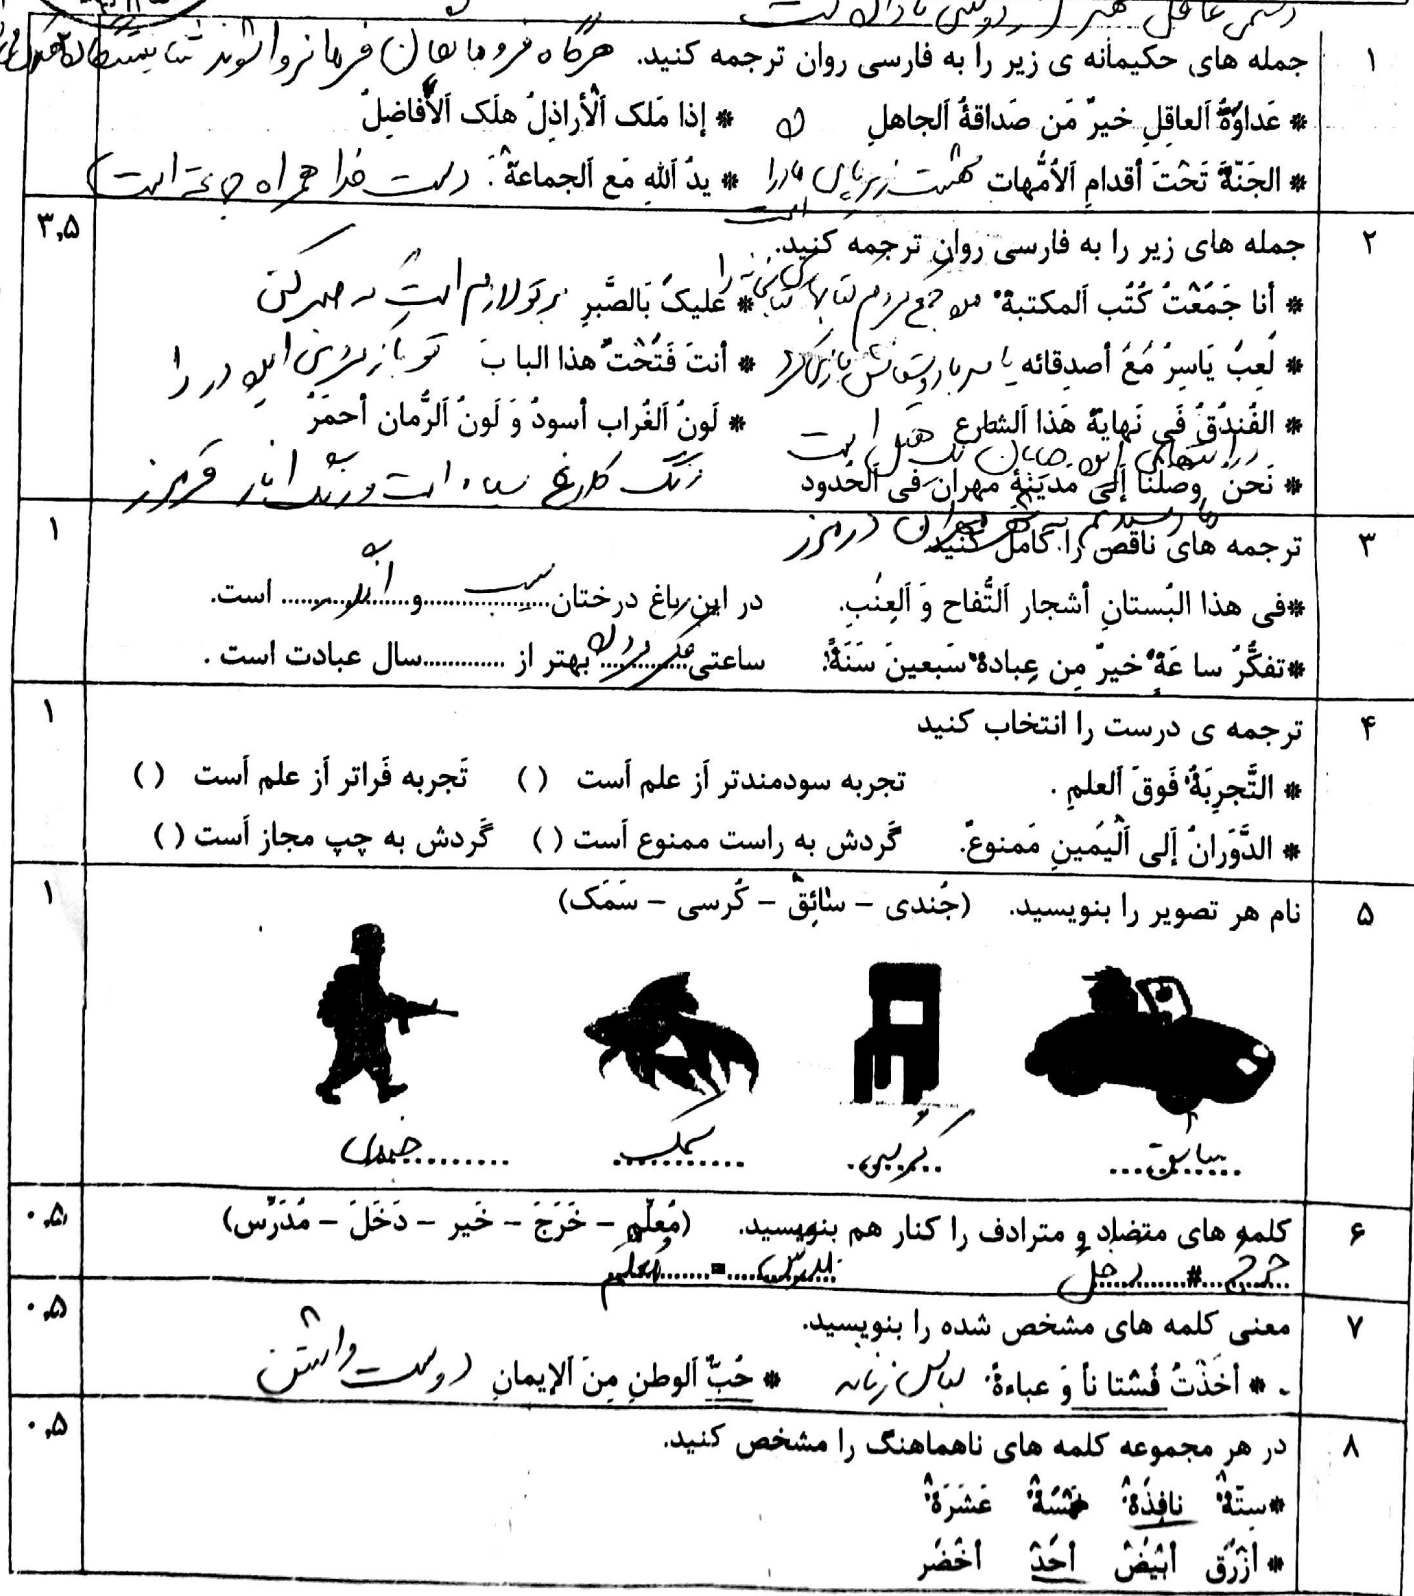 دشمنی عاقل بهتر از دوستی نادان است
۱ جمله های حکیمانه ی زیر را به فارسی روان ترجمه کنید. هرگاه فرومایگان فرمانروا شوند شایستگان
* عَداوَةُ اَلعاقِلِ خیرٌ مَن صَداقةُ اَلجاهلِ * إذا مَلَک اَلْأراذِلُ هلَک اَلأَفاضِلُ
* الجَنّةَ تَحْتَ أقدامِ اَلاُمَّهات بهشت زیر پای مادران است * یدُ اَللهِ مَع اَلجماعة. دست خدا همراه جماعت است
۲ جمله های زیر را به فارسی روان ترجمه کنید. ۳,۵
* أنا جَمَعْتُ کُتُب اَلمکتبة من جمع کردم کتابهای کتابخانه را * علیکَ بَالصَّبرِ بر تو لازم است که صبر کنی
* لَعِبَ یَاسِرٌ مَعَ أصدِقائه یاسر با دوستانش بازی کرد * أنتَ فَتَحْتَ هذا البا بَ تو باز کردی این در را
* الفُندُقُ فَی نَهایَة هَذا اَلشارع در انتهای این خیابان یک هتل است * لَونُ اَلغُراب أسودُ وَ لَونُ اَلرُّمان أحمَرُ
* نَحنُ وصلْنا إلَی مَدیَنَةِ مهران فی اَلحُدود رنگ کلاغ سیاه است و رنگ انار قرمز
ما رسیدیم به شهر مهران در مرز
۳ ترجمه های ناقص را کامل کنید ۱
*فی هذا البُستانِ أشجار اَلتُّفاح وَ اَلعِنَبِ. در این باغ درختان سیب و انگور است.
*تفکُّرُ سا عَة خیرٌ مِن عِبادة سَبعینَ سَنَةً. ساعتی فکر کردن بهتر از ............سال عبادت است .
۴ ترجمه ی درست را انتخاب کنید ۱
* التَّجرِبَةُ فَوقَ اَلعلمِ . تجربه سودمندتر اَز علم اَست ( ) تَجربه فَراتر اَز علم اَست ( )
* الدَّوَرانُ إلَی اَلْیَمینِ مَمنوعٌ. گَردش به راست ممنوع اَست ( ) گَردش به چپ مجاز اَست ( )
۵ نام هر تصویر را بنویسید. (جُندی – سائِق – کُرسی – سَمَک) ۱
سائق کرسی سمک جندی
۶ کلمه های متضاد و مترادف را کنار هم بنویسید. (مُعلّم – خَرَجَ – خَیر – دَخَلَ – مُدَرِّس) ۰,۵
خرج # دخل مدرس = معلم
۷ معنی کلمه های مشخص شده را بنویسید. ۰,۵
* أخَذْتُ فُستا ناً وَ عباءة. لباس زنانه * حُبّ اَلوطنِ مِنَ اَلإیمانِ دوست داشتن
۸ در هر مجموعه کلمه های ناهماهنگ را مشخص کنید. ۰,۵
*سِتّة نافِذَة خَمْسَة عَشَرَة
* أزْرَق أبْیَضْ أحَدْ أخْضَر